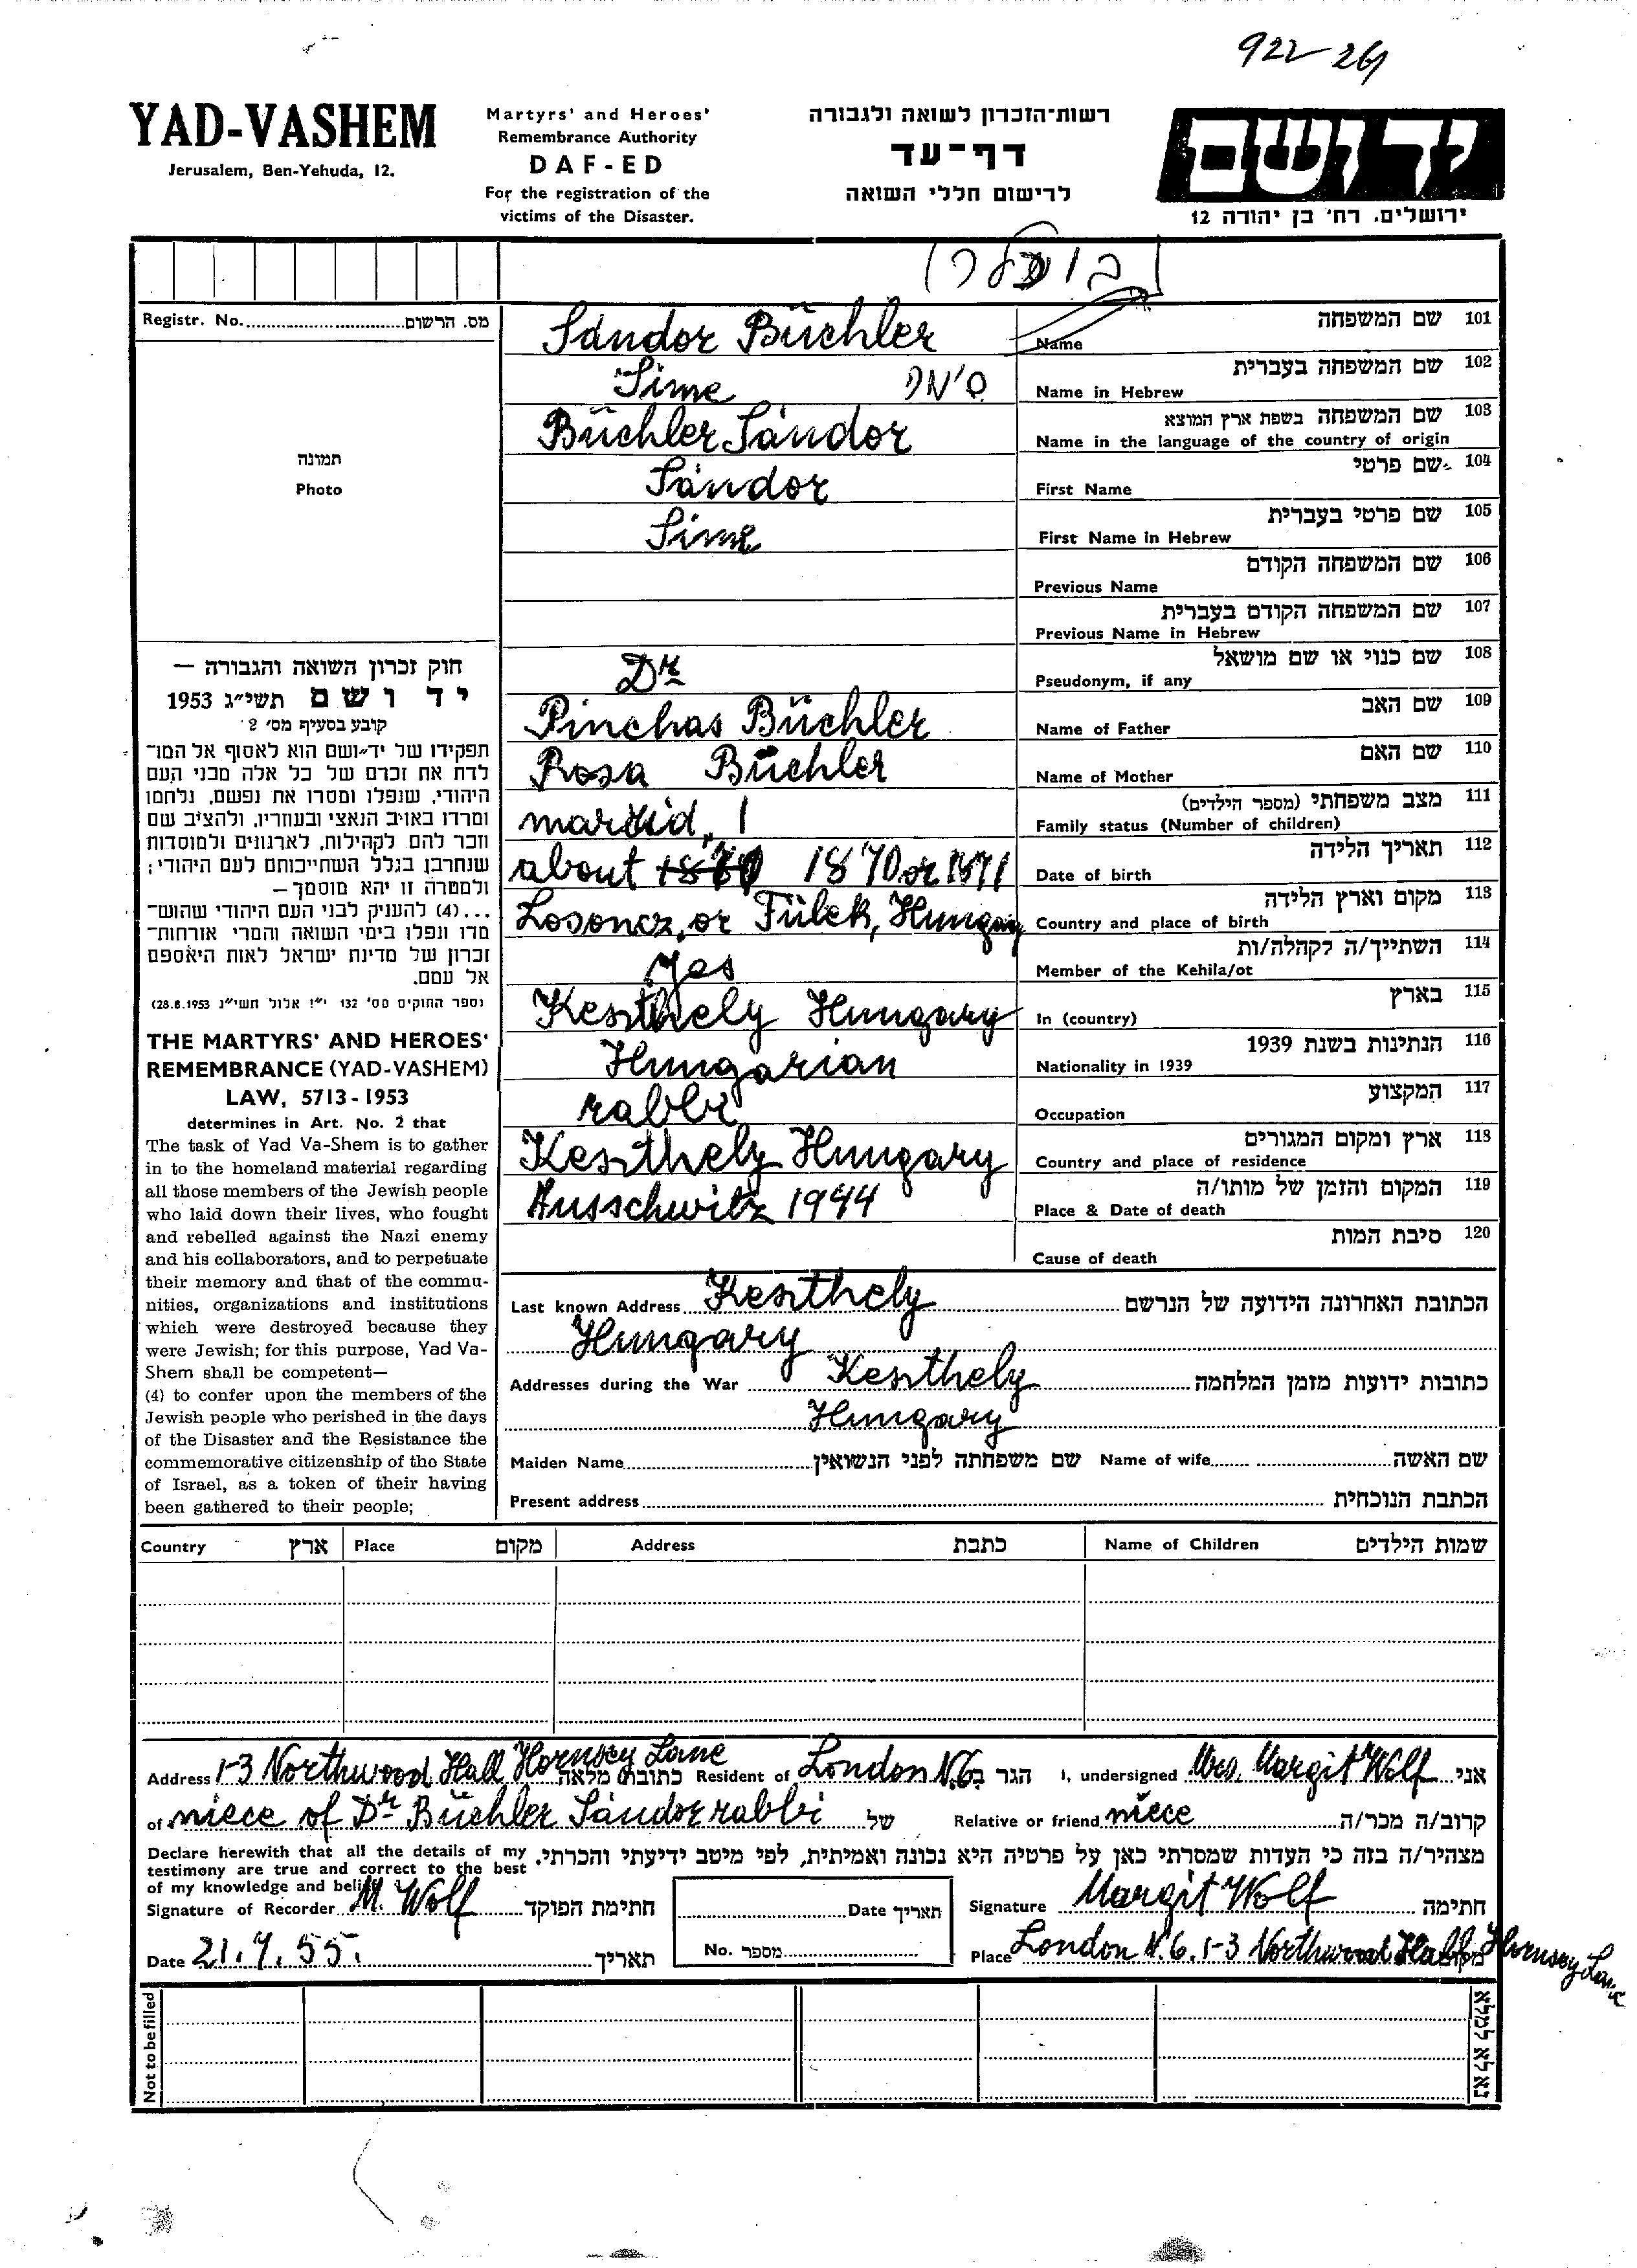 922-261
YAD-VASHEM
Jerusalem, Ben-Yehuda, 12.
Martyrs' and Heroes'
Remembrance Authority
DAF-ED
For the registration of the
victims of the Disaster.
רשות־הזכרון לשואה ולגבורה
דף־עד
לרישום חללי השואה
יד ושם
ירושלים, רח' בן יהודה 12
Registr. No. מס. הרשום
תמונה
Photo
חוק זכרון השואה והגבורה —
יד ושם תשי״ג 1953
קובע בסעיף מס׳ 2
תפקידו של יד־ושם הוא לאסוף אל המו־
לדת את זכרם של כל אלה מבני העם
היהודי, שנפלו ומסרו את נפשם, נלחמו
ומרדו באויב הנאצי ובעוזריו, ולהציב שם
וזכר להם לקהילות, לארגונים ולמוסדות
שנחרבו בגלל השתייכותם לעם היהודי;
ולמטרה זו יהא מוסמך—
...(4) להעניק לבני העם היהודי שהוש־
מדו ונפלו בימי השואה והמרי אזרחות־
זכרון של מדינת ישראל לאות היאספם
אל עמם.
(ספר החוקים מס׳ 132 י״ז אלול תשי״ג 28.8.1953)
THE MARTYRS' AND HEROES'
REMEMBRANCE (YAD-VASHEM)
LAW, 5713-1953
determines in Art. No. 2 that
The task of Yad Va-Shem is to gather
in to the homeland material regarding
all those members of the Jewish people
who laid down their lives, who fought
and rebelled against the Nazi enemy
and his collaborators, and to perpetuate
their memory and that of the commu-
nities, organizations and institutions
which were destroyed because they
were Jewish; for this purpose, Yad Va-
Shem shall be competent—
(4) to confer upon the members of the
Jewish people who perished in the days
of the Disaster and the Resistance the
commemorative citizenship of the State
of Israel, as a token of their having
been gathered to their people;
Sándor Büchler Name שם המשפחה 101
Sime סימה Name in Hebrew שם המשפחה בעברית 102
Büchler Sándor Name in the language of the country of origin שם המשפחה בשפת ארץ המוצא 103
Sándor First Name שם פרטי 104
Sime First Name in Hebrew שם פרטי בעברית 105
Previous Name שם המשפחה הקודם 106
Previous Name in Hebrew שם המשפחה הקודם בעברית 107
Dr Pseudonym, if any שם כנוי או שם מושאל 108
Pinchas Büchler Name of Father שם האב 109
Rosa Büchler Name of Mother שם האם 110
married, 1 Family status (Number of children) מצב משפחתי (מספר הילדים) 111
about 1870 or 1871 Date of birth תאריך הלידה 112
Losoncz, or Fülek, Hungary Country and place of birth מקום וארץ הלידה 113
Yes Member of the Kehila/ot השתייך/ה לקהלה/ות 114
Keszthely Hungary In (country) בארץ 115
Hungarian Nationality in 1939 הנתינות בשנת 1939 116
rabbi Occupation המקצוע 117
Keszthely Hungary Country and place of residence ארץ ומקום המגורים 118
Ausschwitz 1944 Place & Date of death המקום והזמן של מותו/ה 119
Cause of death סיבת המות 120
Last known Address Keszthely הכתובת האחרונה הידועה של הנרשם
Hungary
Addresses during the War Keszthely כתובות ידועות מזמן המלחמה
Hungary
Maiden Name שם משפחתה לפני הנשואין Name of wife שם האשה
Present address הכתבת הנוכחית
Country ארץ Place מקום Address כתבת Name of Children שמות הילדים
Address 1-3 Northwood Hall Hornsey Lane כתובת מלאה Resident of London N.6. הגר ב I, undersigned Mrs. Margit Wolf אני
of niece of Dr Büchler Sándor rabbi של Relative or friend niece קרוב/ה מכר/ה
Declare herewith that all the details of my
testimony are true and correct to the best
of my knowledge and belief.
מצהיר/ה בזה כי העדות שמסרתי כאן על פרטיה היא נכונה ואמיתית, לפי מיטב ידיעתי והכרתי.
Signature of Recorder M. Wolf חתימת הפוקד Date תאריך Signature Margit Wolf חתימה
Date 21.7.55. תאריך No. מספר Place London N.6. 1-3 Northwood Hall Hornsey Lane מקום
Not to be filled נא לא למלא